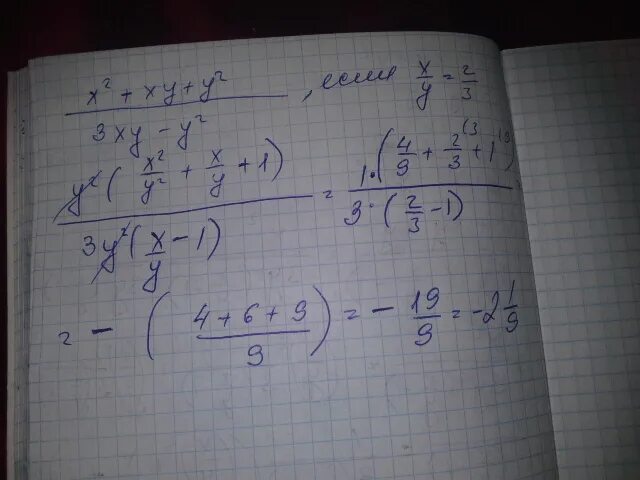 x² + xy + y² / 3xy - y² , если x/y = 2/3
y² ( x²/y² + x/y + 1 ) / 3y² ( x/y - 1 ) = 1 · ( 4/9 + 2/3 (3 + 1 (9 ) / 3 · ( 2/3 - 1 )
= - ( 4 + 6 + 9 / 9 ) = - 19/9 = - 2 1/9